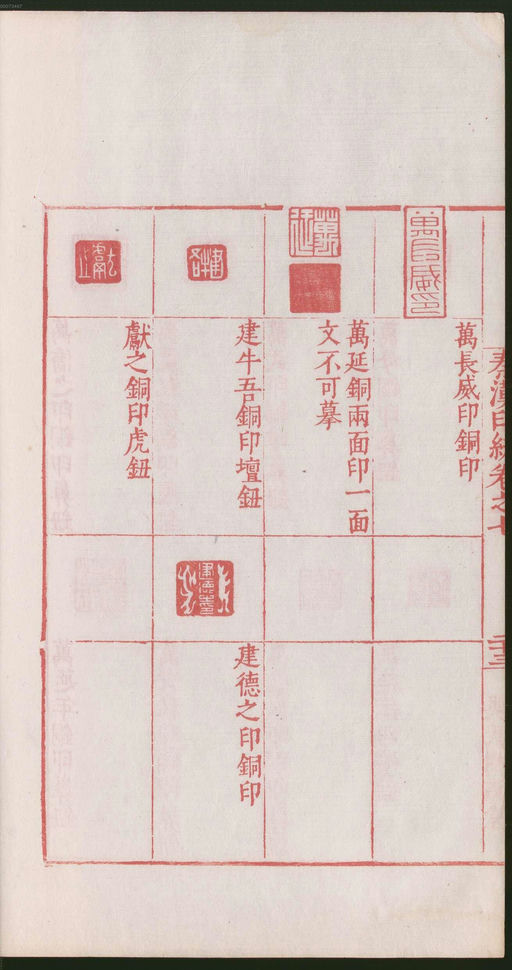 萬長威印銅印
萬延銅兩面印一面
文不可摹
建牛吾銅印壇鈕
獻之銅印虎鈕
建德之印銅印
秦漢印統卷之七
二十三